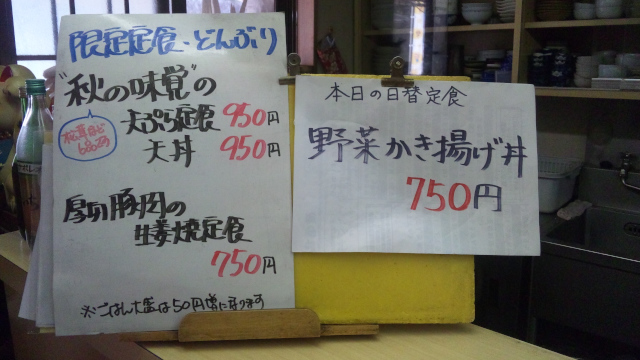 限定定食・どんぶり
"秋の味覚"の
天ぷら定食 950円
天丼 950円
厚切豚肉の
生姜焼定食
750円
※ごはん大盛は50円増になります
本日の日替定食
野菜かき揚げ丼
750円